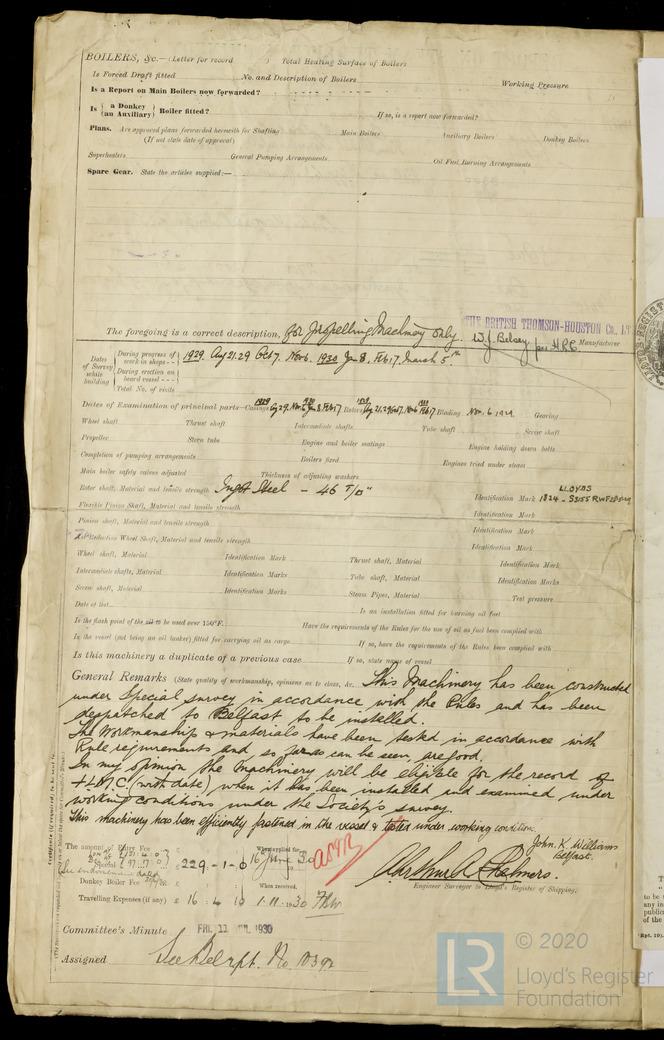 BOILERS, &c.—(Letter for record ) Total Heating Surface of Boilers
Is Forced Draft fitted No. and Description of Boilers Working Pressure
Is a Report on Main Boilers now forwarded?
Is { a Donkey / an Auxiliary } Boiler fitted? If so, is a report now forwarded?
Plans. Are approved plans forwarded herewith for Shafting Main Boilers Auxiliary Boilers Donkey Boilers
(If not state date of approval)
Superheaters General Pumping Arrangements Oil Fuel Burning Arrangements
Spare Gear. State the articles supplied:—
THE BRITISH THOMSON-HOUSTON Co., LT
The foregoing is a correct description, for Propelling Machinery only. W.J. Belsey per H.R.C. Manufacturer
Dates of Survey while building
During progress of work in shops - - 1929. Aug 21. 29 Oct 7. Nov 6. 1930 Jan 8. Feb 17. March 5th
During erection on board vessel - - -
Total No. of visits
Dates of Examination of principal parts—Casings Rotors Blading Nov. 6 1929 Gearing
Wheel shaft Thrust shaft Intermediate shafts Tube shaft Screw shaft
Propeller Stern tube Engine and boiler seatings Engine holding down bolts
Completion of pumping arrangements Boilers fixed Engines tried under steam
Main boiler safety valves adjusted Thickness of adjusting washers
Rotor shaft, Material and tensile strength Ingot Steel - 46 T/□" Identification Mark LLOYDS
Flexible Pinion Shaft, Material and tensile strength Identification Mark
Pinion shaft, Material and tensile strength Identification Mark
1st Reduction Wheel Shaft, Material and tensile strength Identification Mark
Wheel shaft, Material Identification Mark Thrust shaft, Material Identification Mark
Intermediate shafts, Material Identification Marks Tube shaft, Material Identification Marks
Screw shaft, Material Identification Marks Steam Pipes, Material Test pressure
Date of test Is an installation fitted for burning oil fuel
Is the flash point of the oil to be used over 150°F. Have the requirements of the Rules for the use of oil as fuel been complied with
Is the vessel (not being an oil tanker) fitted for carrying oil as cargo If so, have the requirements of the Rules been complied with
Is this machinery a duplicate of a previous case If so, state name of vessel
General Remarks (State quality of workmanship, opinions as to class, &c. This Machinery has been constructed
under special survey in accordance with the Rules and has been
despatched to Belfast to be installed.
The Workmanship & materials have been tested in accordance with
Rule requirements and so far as can be seen, are good.
In my opinion the machinery will be eligible for the record of
+LMC (with date) when it has been installed and examined under
working conditions under the Society's survey.
This machinery has been efficiently fastened in the vessel & tested under working condition.
John. K. Williams
Belfast.
The amount of Entry Fee When applied for,
Special £ 229 - 1 - 0 16 June 30
Donkey Boiler Fee £ When received,
Travelling Expenses (if any) £ 16 : 4 : 10 1.11.1930
Engineer Surveyor to Lloyd's Register of Shipping.
Committee's Minute FRI. 11 JUL 1930
Assigned See Bel rpt. No. 10392
© 2020
Lloyd's Register
Foundation
LR